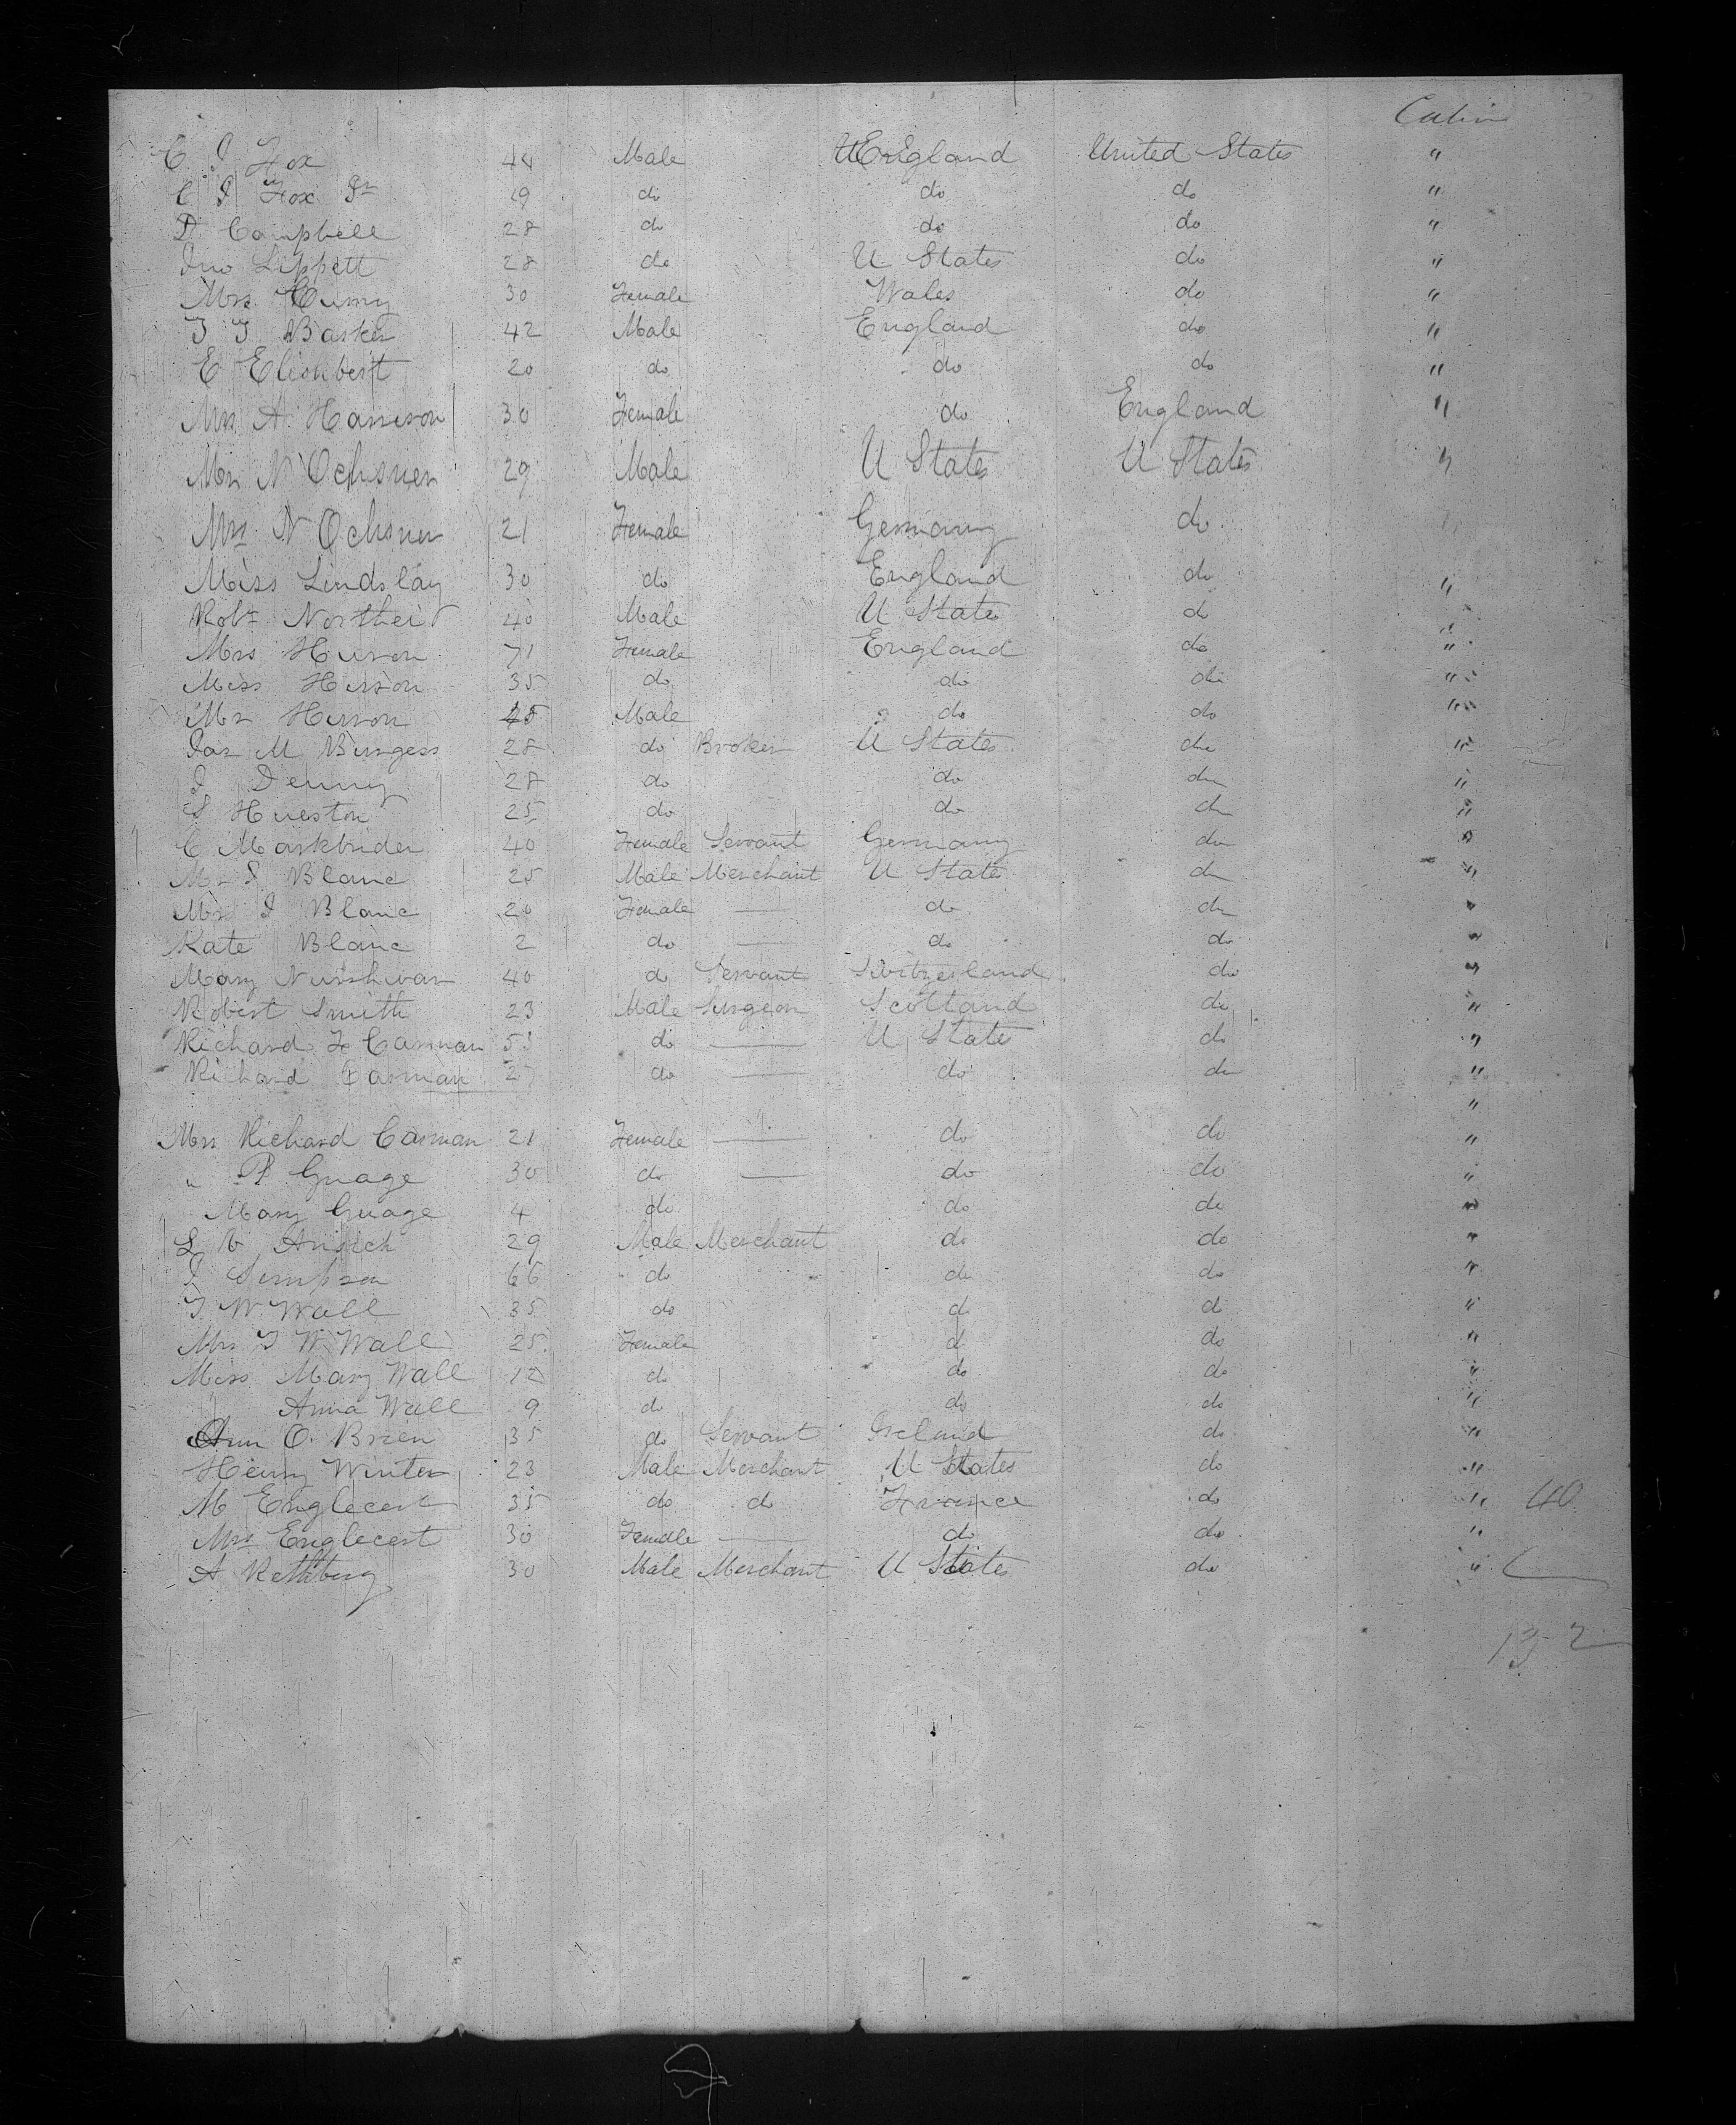 Cabin
C J Fox 44 Male England United States "
C J Fox Jr 19 do do do "
D Campbell 28 do do do "
Jno Lippett 28 do U States do "
Mrs 30 Female Wales do "
T T Barker 42 Male England do "
E 20 do do do "
Mrs A Harrison 30 Female do England "
Mr N Ochsner 29 Male U States U States "
Mrs N Ochsner 21 Female Germany do "
Miss Lindslay 30 do England do "
Robt 40 Male U States do "
Mrs Huson 71 Female England do "
Miss Huson 35 do do do "
Mr Huson Male do do "
Jas M Burgess 28 do Broker U States do "
J Denny 28 do do do "
S Hueston 25 do do do "
C 40 Female Servant Germany do "
Mr J Blanc 25 Male Merchant U States do "
Mrs J Blanc 20 Female — do do "
Kate Blanc 2 do — do do "
Mary 40 do Servant Switzerland do "
Robert Smith 23 Male Surgeon Scotland do "
Richard F Carman do — U States do "
Richard Carman do — do do "
"
Mrs Richard Carman 21 Female — do do "
" P Guage 30 do — do do "
Mary Guage 4 do do do "
L V 29 Male Merchant do do "
J Simpson 66 do do do "
T W Wall 35 do do do "
Mrs T W Wall 25 Female do do "
Miss Mary Wall 12 do do do "
Anna Wall 9 do do do "
Ann O. Brien 35 do Servant Ireland do "
Henry Winter 23 Male Merchant U States do "
M Englecert 35 do do France do " 40
Mrs Englecert 30 Female — do do "
A Rethberg 30 Male Merchant U States do "
132